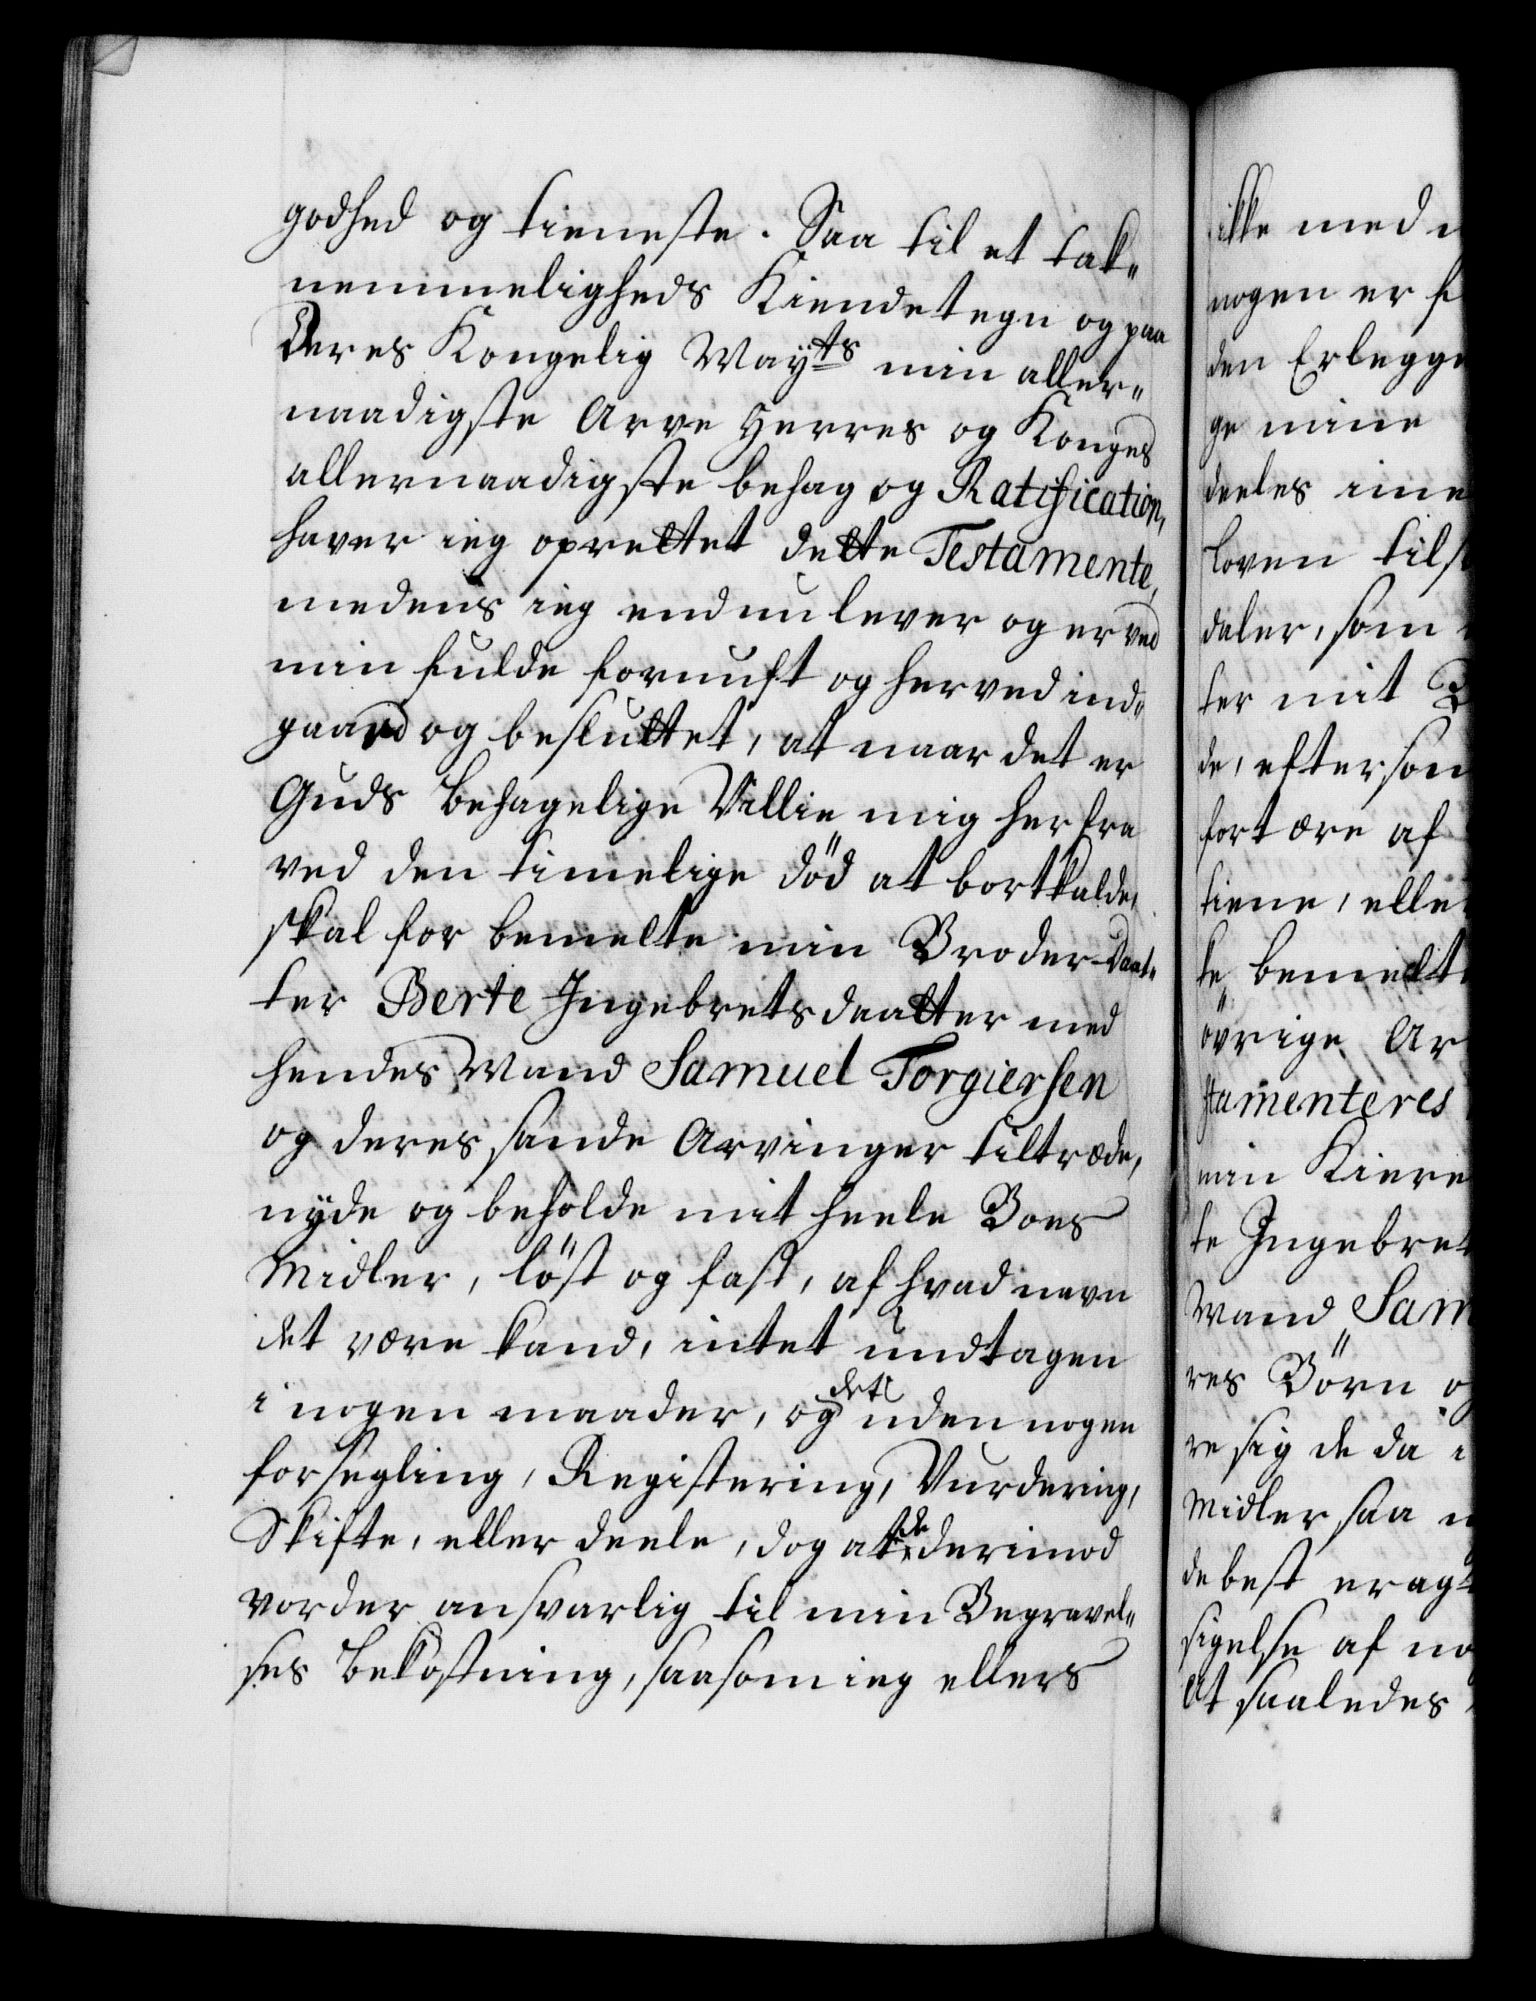 godhed og tieneste. Saa til et tak„
nemmeligheds Kiendetegn og paa
Deres Kongelig Mayts min aller„
naadigste Arve Herres og Konges
allernaadigste behag og Ratification,
haver ieg oprettet dette Testamente,
medens ieg endnu lever og er ved
min fulde fornuft og herved ind„
gaard og besluttet, at naar det er
Guds behagelige Villie mig her fra
ved den timelige död at bortkalde,
skal for bemelte min Broder Daat„
ter Berte Ingebretsdaatter med
hendes Mand Samuel Torgiersen
og deres sande Arvinger tiltræde,
nyde og beholde mit heele Boes
Midler, löst og fast, af hvad navn
det være kand, intet undtagen
i nogen maader, og det uden nogen
forsegling, Registering, Vurdering,
Skifte, eller deele, dog at de derimod
vorder ansvarlig til min Begravel„
ses bekostning, saasom ieg ellers
ikke med
nogen er
den Erlegge
ge mine
deeles ime
loven tils
daler, som
ter mit
de, efterson
fortære af
tiene, elle
te bemelt
övrige Ar
stamenteres
min Kiere
te Ingebret
Mand Sam
res Börn o
re sig de da i
Midler saa
de best eragt
sigelse af no
At saaledes